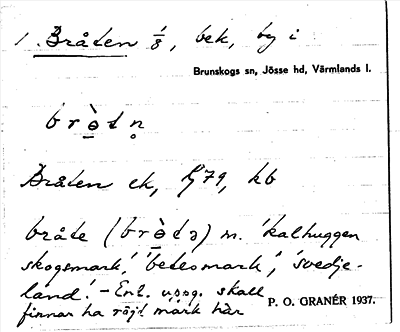 1. Bråten 1/8, bek, by i
Brunskogs sn, Jösse hd, Värmlands l.
brə̀tn̥
Bråten ek, G79, kb
bråte (brə̀tə) m. 'kalhuggen
skogsmark', 'betesmark', 'svedje-
land'. - Enl. uppg. skall
finnar ha röjt mark här
P. O. GRANÉR 1937.